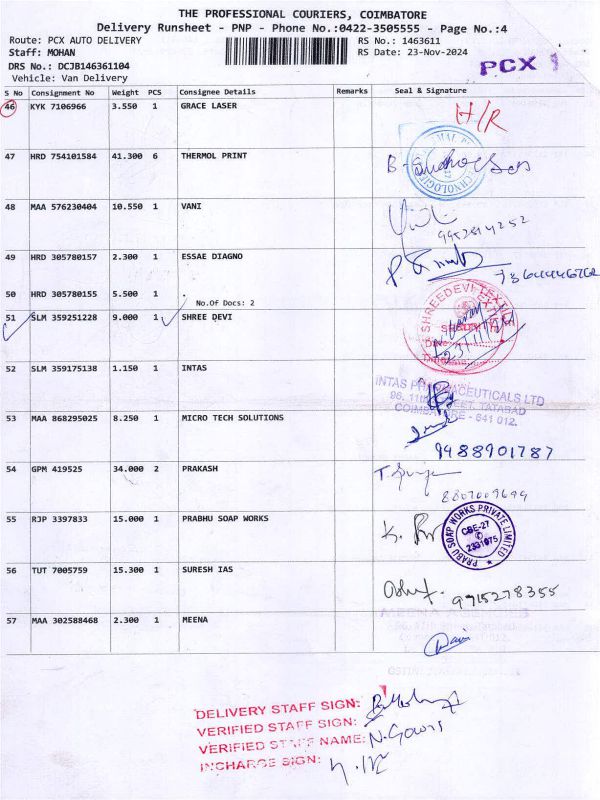 THE PROFESSIONAL COURIERS, COIMBATORE
Delivery Runsheet - PNP - Phone No.:0422-3505555 - Page No.:4
Route: PCX AUTO DELIVERY RS No.: 1463611
Staff: MOHAN RS Date: 23-Nov-2024
DRS No.: DCJB146361104
Vehicle: Van Delivery
PCX 1
S No Consignment No Weight PCS Consignee Details Remarks Seal & Signature
46 KYK 7106966 3.550 1 GRACE LASER H/R
47 HRD 754101584 41.300 6 THERMOL PRINT
48 MAA 576230404 10.550 1 VANI
49 HRD 305780157 2.300 1 ESSAE DIAGNO
50 HRD 305780155 5.500 1
No.Of Docs: 2
51 SLM 359251228 9.000 1 SHREE DEVI
SHREEDEVI TEXTILE
52 SLM 359175138 1.150 1 INTAS
INTAS PHARMACEUTICALS LTD
TATABAD
COIMBATORE - 641 012.
53 MAA 868295025 8.250 1 MICRO TECH SOLUTIONS
9988901787
54 GPM 419525 34.000 2 PRAKASH
55 RJP 3397833 15.000 1 PRABHU SOAP WORKS
PRABU SOAP WORKS PRIVATE LIMITED
CBE-27
2331075
56 TUT 7005759 15.300 1 SURESH IAS
9715278355
57 MAA 302588468 2.300 1 MEENA
DELIVERY STAFF SIGN:
VERIFIED STAFF SIGN:
VERIFIED STAFF NAME: N.Gowri
INCHARGE SIGN: